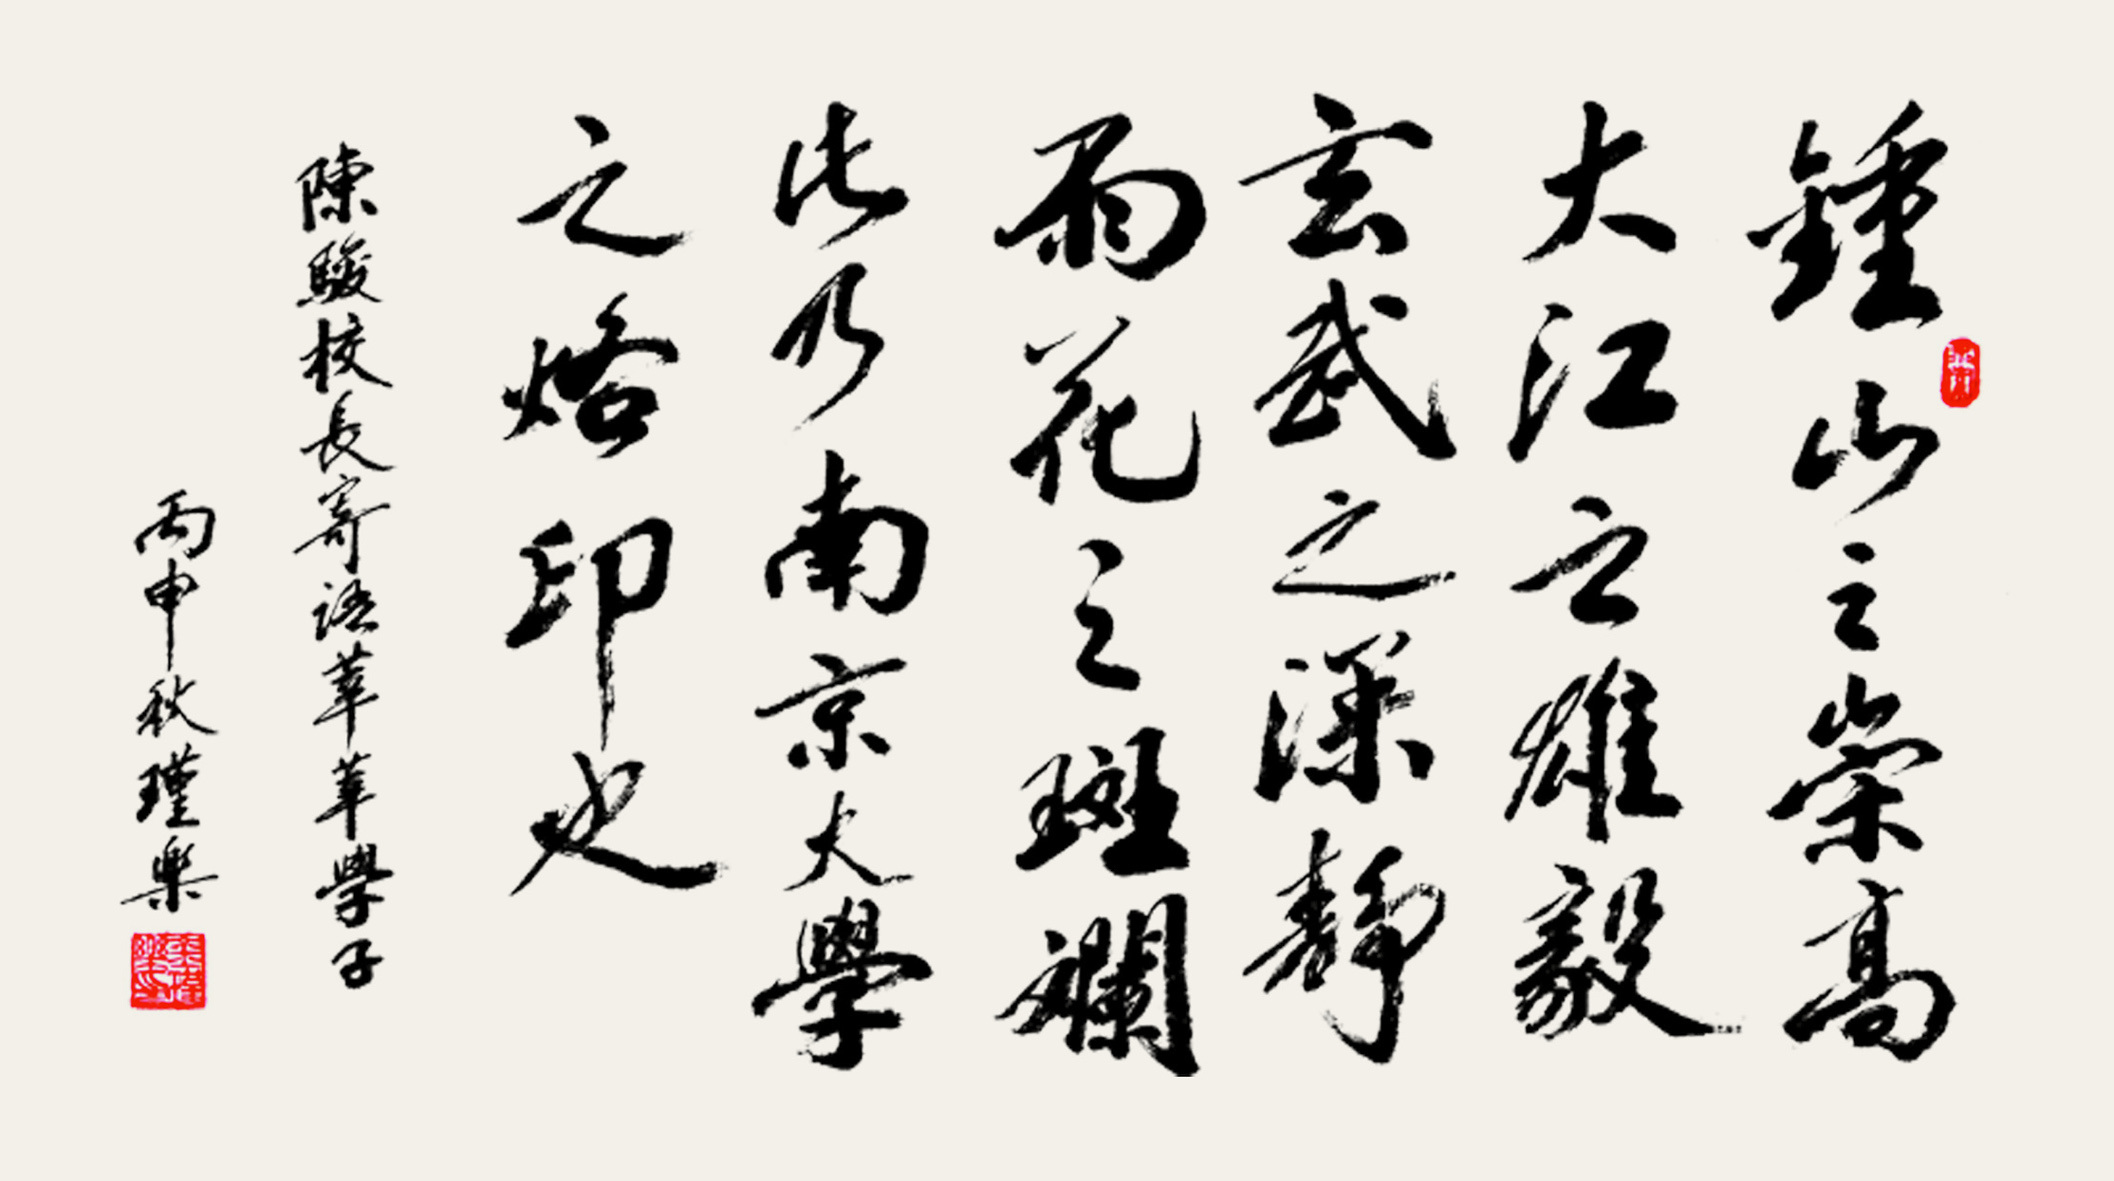 鍾山之崇高
大江之雄毅
玄武之深靜
雨花之斑斕
此乃南京大學
之烙印也
陳駿校長寄語莘莘學子
丙申秋瑾樂